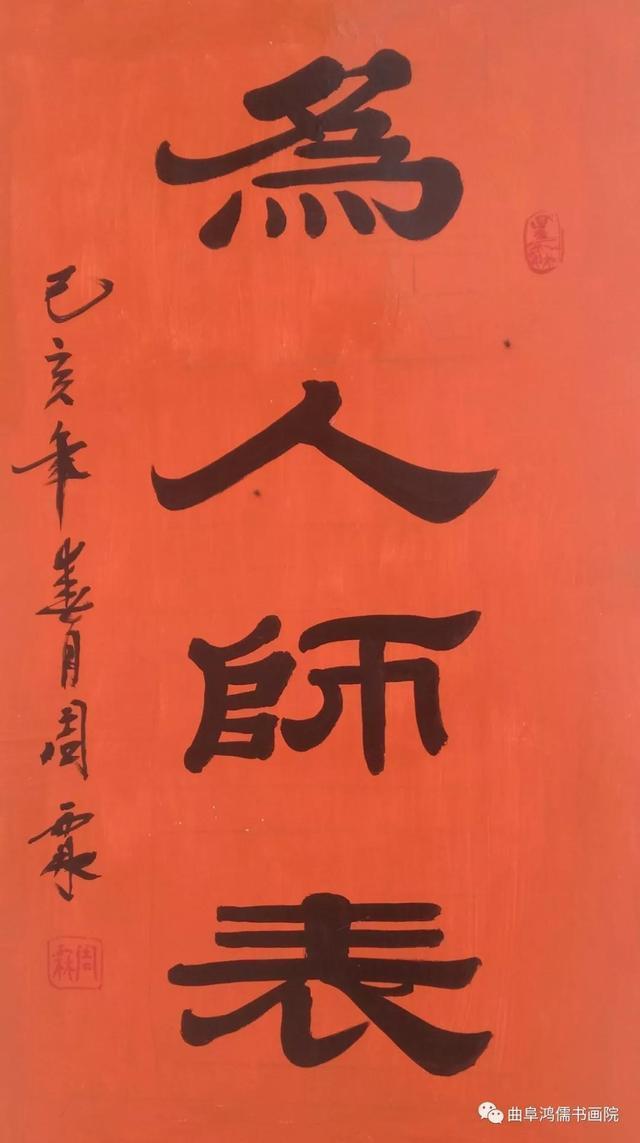 為人師表
己亥年春月周霖
周霖
曲阜鸿儒书画院